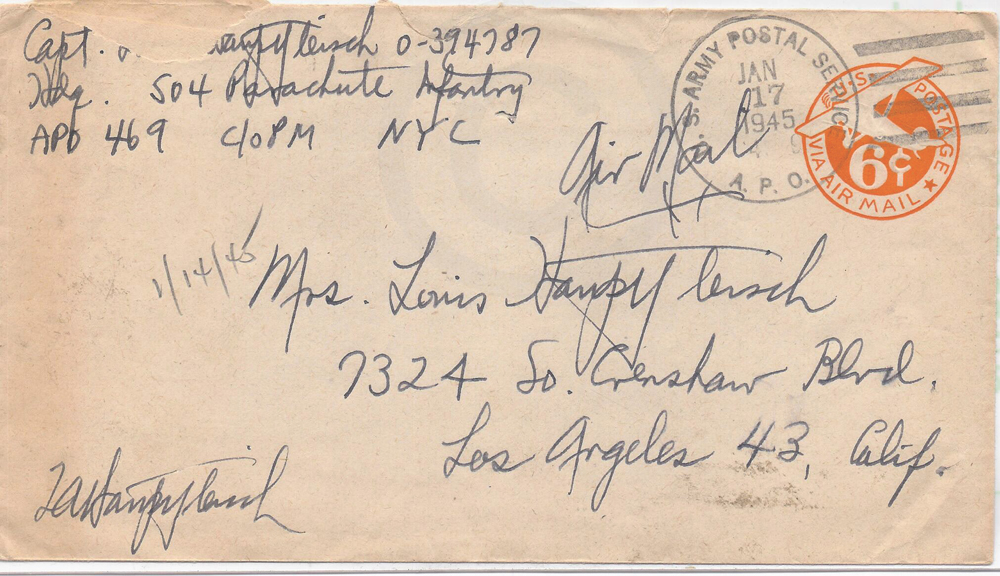 Capt. Hauptfleisch 0-394787
Hdq. 504 Parachute Infantry
APO 469 C/O PM NYC
U.S. ARMY POSTAL SERVICE
JAN
17
1945
A.P.O.
U.S. POSTAGE
6¢
VIA AIR MAIL
Air Mail
1/14/45
Mrs. Louis Hauptfleisch
7324 So. Crenshaw Blvd.
Los Angeles 43, Calif.
LAHauptfleisch